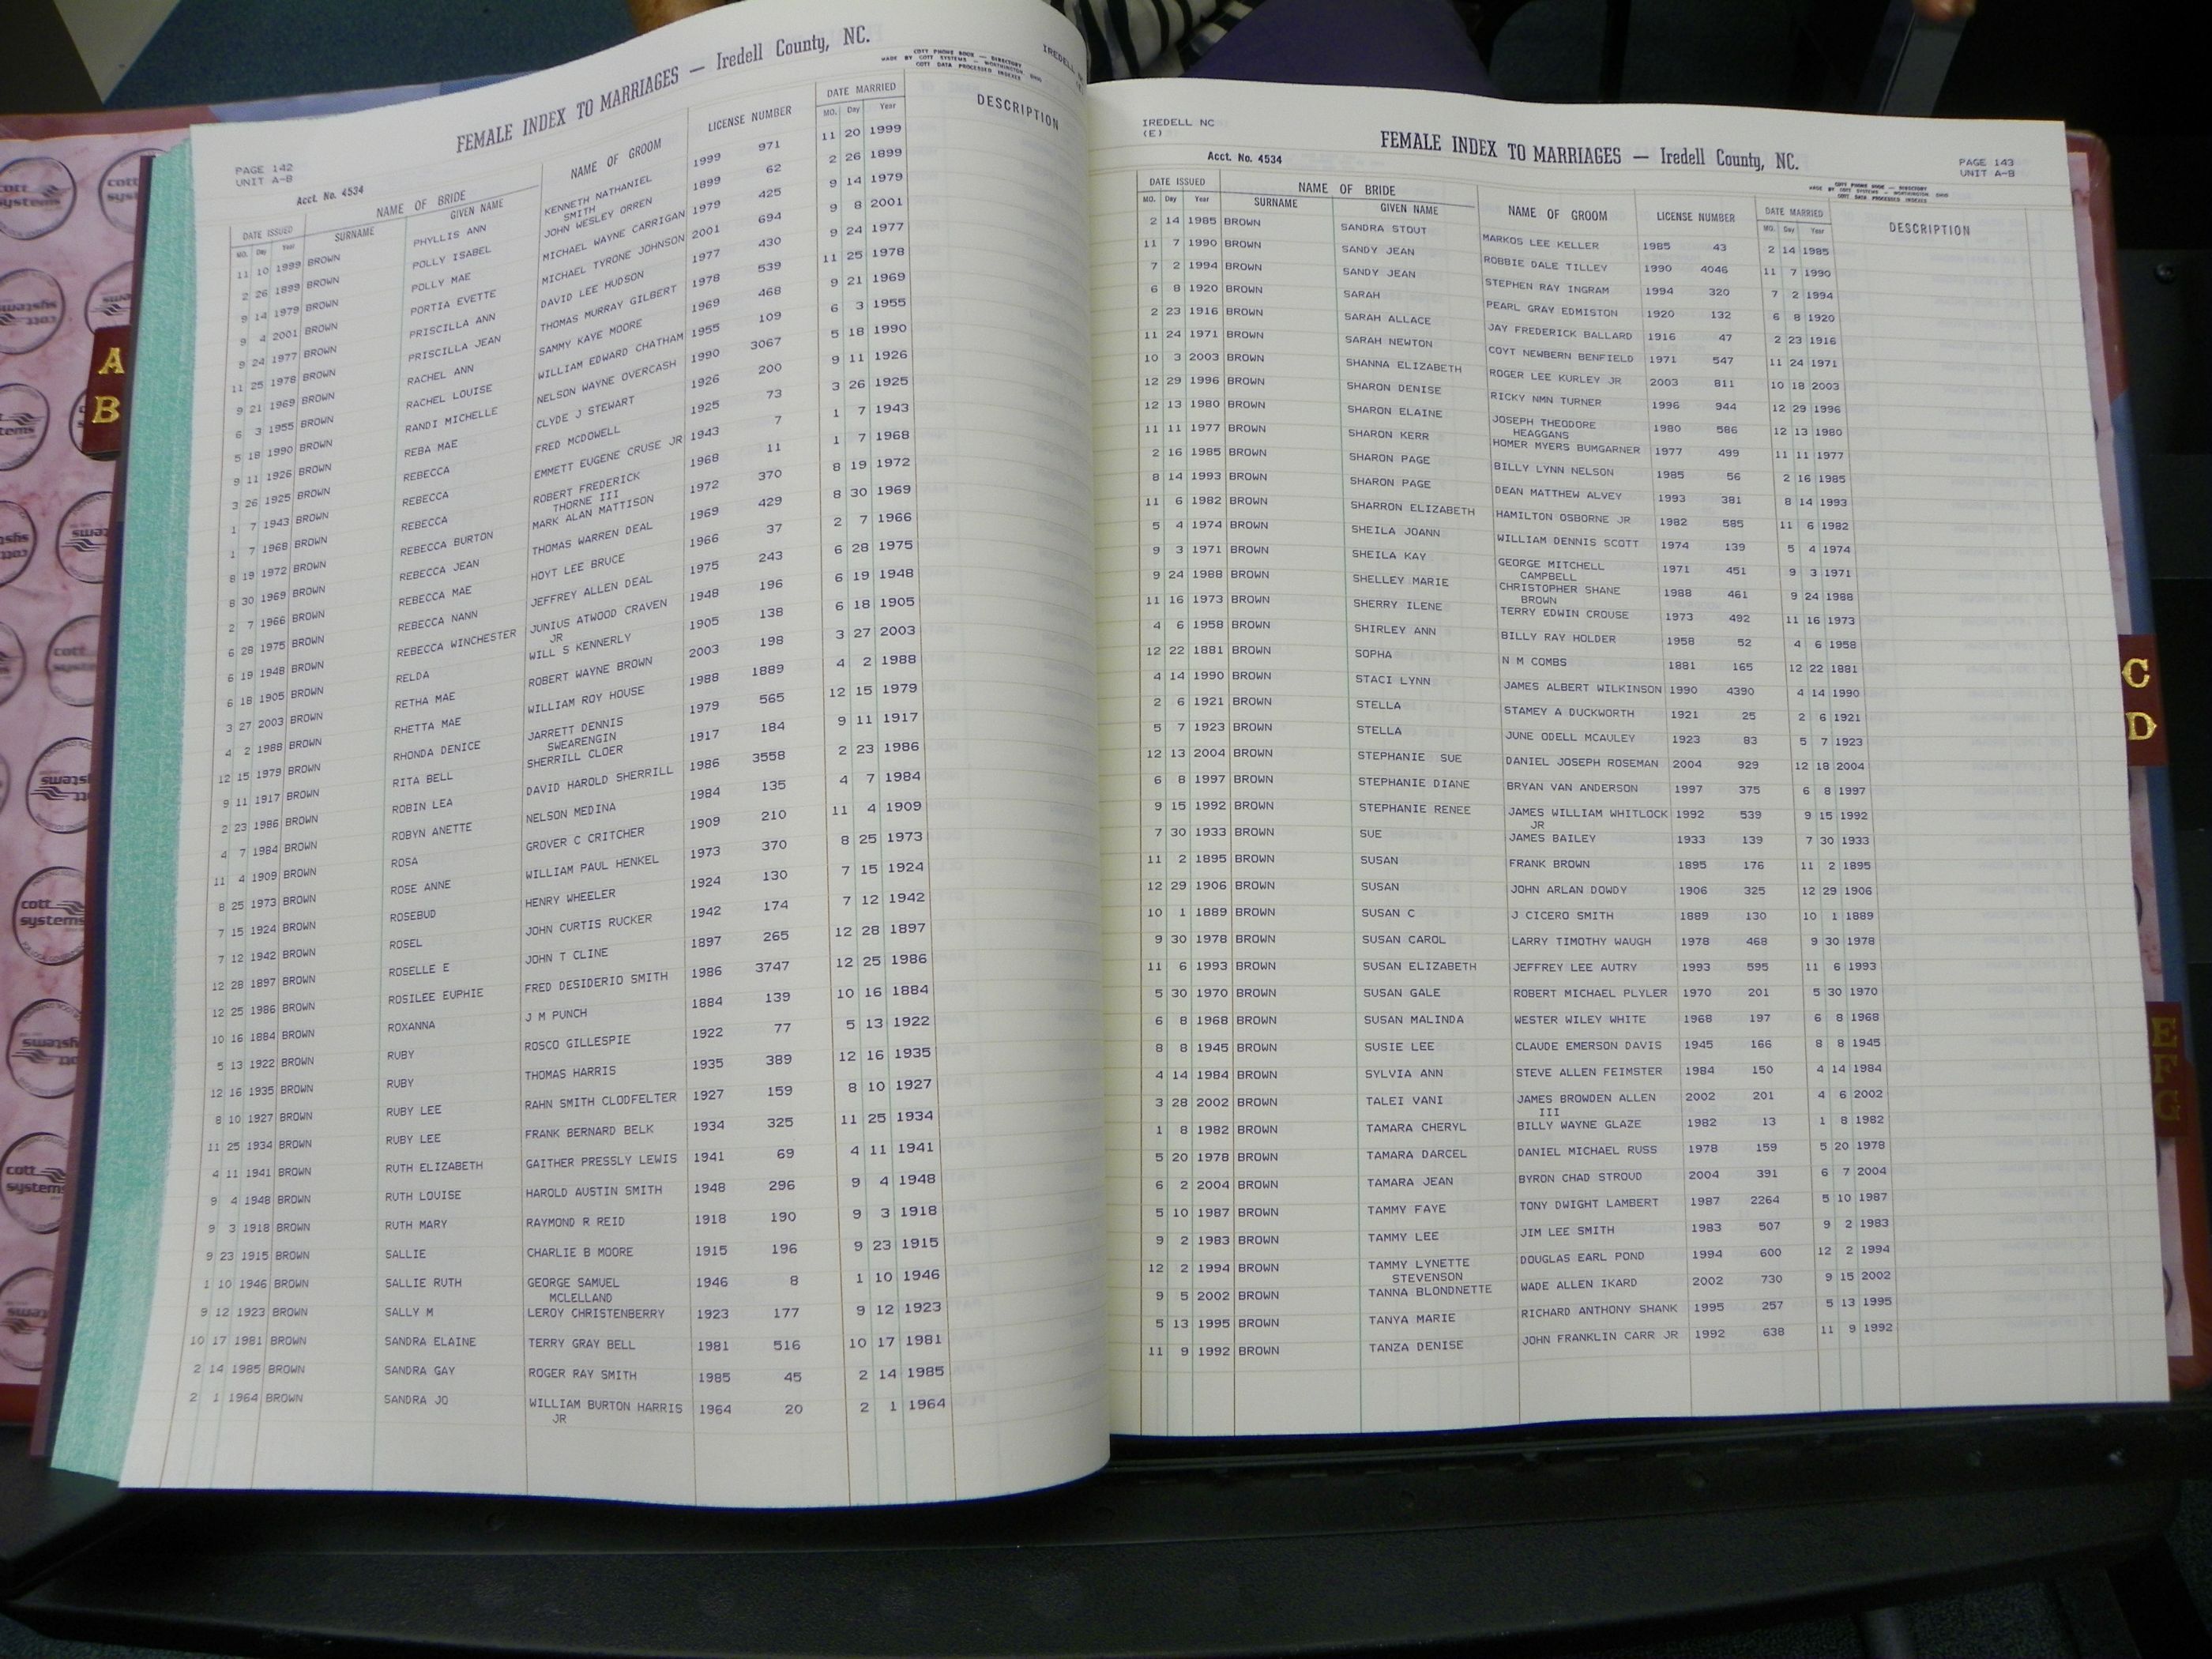 FEMALE INDEX TO MARRIAGES — Iredell County, NC.
COTT PHONE BOOK — DIRECTORY
MADE BY COTT SYSTEMS — WORTHINGTON, OHIO
COTT DATA PROCESSED INDEXES
PAGE 142
UNIT A-B
Acct. No. 4534
DATE ISSUED NAME OF BRIDE NAME OF GROOM LICENSE NUMBER DATE MARRIED DESCRIPTION
MO. Day Year SURNAME GIVEN NAME MO. Day Year
11 10 1999 BROWN PHYLLIS ANN KENNETH NATHANIEL 1999 971 11 20 1999
SMITH
2 26 1899 BROWN POLLY ISABEL JOHN WESLEY ORREN 1899 62 2 26 1899
9 14 1979 BROWN POLLY MAE MICHAEL WAYNE CARRIGAN 1979 425 9 14 1979
9 4 2001 BROWN PORTIA EVETTE MICHAEL TYRONE JOHNSON 2001 694 9 8 2001
9 24 1977 BROWN PRISCILLA ANN DAVID LEE HUDSON 1977 430 9 24 1977
11 25 1978 BROWN PRISCILLA JEAN THOMAS MURRAY GILBERT 1978 539 11 25 1978
9 21 1969 BROWN RACHEL ANN SAMMY KAYE MOORE 1969 468 9 21 1969
6 3 1955 BROWN RACHEL LOUISE WILLIAM EDWARD CHATHAM 1955 109 6 3 1955
5 18 1990 BROWN RANDI MICHELLE NELSON WAYNE OVERCASH 1990 3067 5 18 1990
9 11 1926 BROWN REBA MAE CLYDE J STEWART 1926 200 9 11 1926
3 26 1925 BROWN REBECCA FRED MCDOWELL 1925 73 3 26 1925
1 7 1943 BROWN REBECCA EMMETT EUGENE CRUSE JR 1943 7 1 7 1943
1 7 1968 BROWN REBECCA ROBERT FREDERICK 1968 11 1 7 1968
THORNE III
8 19 1972 BROWN REBECCA BURTON MARK ALAN MATTISON 1972 370 8 19 1972
8 30 1969 BROWN REBECCA JEAN THOMAS WARREN DEAL 1969 429 8 30 1969
2 7 1966 BROWN REBECCA MAE HOYT LEE BRUCE 1966 37 2 7 1966
6 28 1975 BROWN REBECCA NANN JEFFREY ALLEN DEAL 1975 243 6 28 1975
6 19 1948 BROWN REBECCA WINCHESTER JUNIUS ATWOOD CRAVEN 1948 196 6 19 1948
JR
6 18 1905 BROWN RELDA WILL S KENNERLY 1905 138 6 18 1905
3 27 2003 BROWN RETHA MAE ROBERT WAYNE BROWN 2003 198 3 27 2003
4 2 1988 BROWN RHETTA MAE WILLIAM ROY HOUSE 1988 1889 4 2 1988
12 15 1979 BROWN RHONDA DENICE JARRETT DENNIS 1979 565 12 15 1979
SWEARENGIN
9 11 1917 BROWN RITA BELL SHERRILL CLOER 1917 184 9 11 1917
2 23 1986 BROWN ROBIN LEA DAVID HAROLD SHERRILL 1986 3558 2 23 1986
4 7 1984 BROWN ROBYN ANETTE NELSON MEDINA 1984 135 4 7 1984
11 4 1909 BROWN ROSA GROVER C CRITCHER 1909 210 11 4 1909
8 25 1973 BROWN ROSE ANNE WILLIAM PAUL HENKEL 1973 370 8 25 1973
7 15 1924 BROWN ROSEBUD HENRY WHEELER 1924 130 7 15 1924
7 12 1942 BROWN ROSEL JOHN CURTIS RUCKER 1942 174 7 12 1942
12 28 1897 BROWN ROSELLE E JOHN T CLINE 1897 265 12 28 1897
12 25 1986 BROWN ROSILEE EUPHIE FRED DESIDERIO SMITH 1986 3747 12 25 1986
10 16 1884 BROWN ROXANNA J M PUNCH 1884 139 10 16 1884
5 13 1922 BROWN RUBY ROSCO GILLESPIE 1922 77 5 13 1922
12 16 1935 BROWN RUBY THOMAS HARRIS 1935 389 12 16 1935
8 10 1927 BROWN RUBY LEE RAHN SMITH CLODFELTER 1927 159 8 10 1927
11 25 1934 BROWN RUBY LEE FRANK BERNARD BELK 1934 325 11 25 1934
4 11 1941 BROWN RUTH ELIZABETH GAITHER PRESSLY LEWIS 1941 69 4 11 1941
9 4 1948 BROWN RUTH LOUISE HAROLD AUSTIN SMITH 1948 296 9 4 1948
9 3 1918 BROWN RUTH MARY RAYMOND R REID 1918 190 9 3 1918
9 23 1915 BROWN SALLIE CHARLIE B MOORE 1915 196 9 23 1915
1 10 1946 BROWN SALLIE RUTH GEORGE SAMUEL 1946 8 1 10 1946
MCLELLAND
9 12 1923 BROWN SALLY M LEROY CHRISTENBERRY 1923 177 9 12 1923
10 17 1981 BROWN SANDRA ELAINE TERRY GRAY BELL 1981 516 10 17 1981
2 14 1985 BROWN SANDRA GAY ROGER RAY SMITH 1985 45 2 14 1985
2 1 1964 BROWN SANDRA JO WILLIAM BURTON HARRIS 1964 20 2 1 1964
JR
IREDELL NC
(E)
FEMALE INDEX TO MARRIAGES — Iredell County, NC.
Acct. No. 4534
PAGE 143
UNIT A-B
COTT PHONE BOOK — DIRECTORY
MADE BY COTT SYSTEMS — WORTHINGTON, OHIO
COTT DATA PROCESSED INDEXES
DATE ISSUED NAME OF BRIDE NAME OF GROOM LICENSE NUMBER DATE MARRIED DESCRIPTION
MO. Day Year SURNAME GIVEN NAME MO. Day Year
2 14 1985 BROWN SANDRA STOUT MARKOS LEE KELLER 1985 43 2 14 1985
11 7 1990 BROWN SANDY JEAN ROBBIE DALE TILLEY 1990 4046 11 7 1990
7 2 1994 BROWN SANDY JEAN STEPHEN RAY INGRAM 1994 320 7 2 1994
6 8 1920 BROWN SARAH PEARL GRAY EDMISTON 1920 132 6 8 1920
2 23 1916 BROWN SARAH ALLACE JAY FREDERICK BALLARD 1916 47 2 23 1916
11 24 1971 BROWN SARAH NEWTON COYT NEWBERN BENFIELD 1971 547 11 24 1971
10 3 2003 BROWN SHANNA ELIZABETH ROGER LEE KURLEY JR 2003 811 10 18 2003
12 29 1996 BROWN SHARON DENISE RICKY NMN TURNER 1996 944 12 29 1996
12 13 1980 BROWN SHARON ELAINE JOSEPH THEODORE 1980 586 12 13 1980
HEAGGANS
11 11 1977 BROWN SHARON KERR HOMER MYERS BUMGARNER 1977 499 11 11 1977
2 16 1985 BROWN SHARON PAGE BILLY LYNN NELSON 1985 56 2 16 1985
8 14 1993 BROWN SHARON PAGE DEAN MATTHEW ALVEY 1993 381 8 14 1993
11 6 1982 BROWN SHARRON ELIZABETH HAMILTON OSBORNE JR 1982 585 11 6 1982
5 4 1974 BROWN SHEILA JOANN WILLIAM DENNIS SCOTT 1974 139 5 4 1974
9 3 1971 BROWN SHEILA KAY GEORGE MITCHELL 1971 451 9 3 1971
CAMPBELL
9 24 1988 BROWN SHELLEY MARIE CHRISTOPHER SHANE 1988 461 9 24 1988
BROWN
11 16 1973 BROWN SHERRY ILENE TERRY EDWIN CROUSE 1973 492 11 16 1973
4 6 1958 BROWN SHIRLEY ANN BILLY RAY HOLDER 1958 52 4 6 1958
12 22 1881 BROWN SOPHA N M COMBS 1881 165 12 22 1881
4 14 1990 BROWN STACI LYNN JAMES ALBERT WILKINSON 1990 4390 4 14 1990
2 6 1921 BROWN STELLA STAMEY A DUCKWORTH 1921 25 2 6 1921
5 7 1923 BROWN STELLA JUNE ODELL MCAULEY 1923 83 5 7 1923
12 13 2004 BROWN STEPHANIE SUE DANIEL JOSEPH ROSEMAN 2004 929 12 18 2004
6 8 1997 BROWN STEPHANIE DIANE BRYAN VAN ANDERSON 1997 375 6 8 1997
9 15 1992 BROWN STEPHANIE RENEE JAMES WILLIAM WHITLOCK 1992 539 9 15 1992
JR
7 30 1933 BROWN SUE JAMES BAILEY 1933 139 7 30 1933
11 2 1895 BROWN SUSAN FRANK BROWN 1895 176 11 2 1895
12 29 1906 BROWN SUSAN JOHN ARLAN DOWDY 1906 325 12 29 1906
10 1 1889 BROWN SUSAN C J CICERO SMITH 1889 130 10 1 1889
9 30 1978 BROWN SUSAN CAROL LARRY TIMOTHY WAUGH 1978 468 9 30 1978
11 6 1993 BROWN SUSAN ELIZABETH JEFFREY LEE AUTRY 1993 595 11 6 1993
5 30 1970 BROWN SUSAN GALE ROBERT MICHAEL PLYLER 1970 201 5 30 1970
6 8 1968 BROWN SUSAN MALINDA WESTER WILEY WHITE 1968 197 6 8 1968
8 8 1945 BROWN SUSIE LEE CLAUDE EMERSON DAVIS 1945 166 8 8 1945
4 14 1984 BROWN SYLVIA ANN STEVE ALLEN FEIMSTER 1984 150 4 14 1984
3 28 2002 BROWN TALEI VANI JAMES BROWDEN ALLEN 2002 201 4 6 2002
III
1 8 1982 BROWN TAMARA CHERYL BILLY WAYNE GLAZE 1982 13 1 8 1982
5 20 1978 BROWN TAMARA DARCEL DANIEL MICHAEL RUSS 1978 159 5 20 1978
6 2 2004 BROWN TAMARA JEAN BYRON CHAD STROUD 2004 391 6 7 2004
5 10 1987 BROWN TAMMY FAYE TONY DWIGHT LAMBERT 1987 2264 5 10 1987
9 2 1983 BROWN TAMMY LEE JIM LEE SMITH 1983 507 9 2 1983
12 2 1994 BROWN TAMMY LYNETTE DOUGLAS EARL POND 1994 600 12 2 1994
STEVENSON
9 5 2002 BROWN TANNA BLONDNETTE WADE ALLEN IKARD 2002 730 9 15 2002
5 13 1995 BROWN TANYA MARIE RICHARD ANTHONY SHANK 1995 257 5 13 1995
11 9 1992 BROWN TANZA DENISE JOHN FRANKLIN CARR JR 1992 638 11 9 1992
A
B
C
D
E
F
G
cott
systems